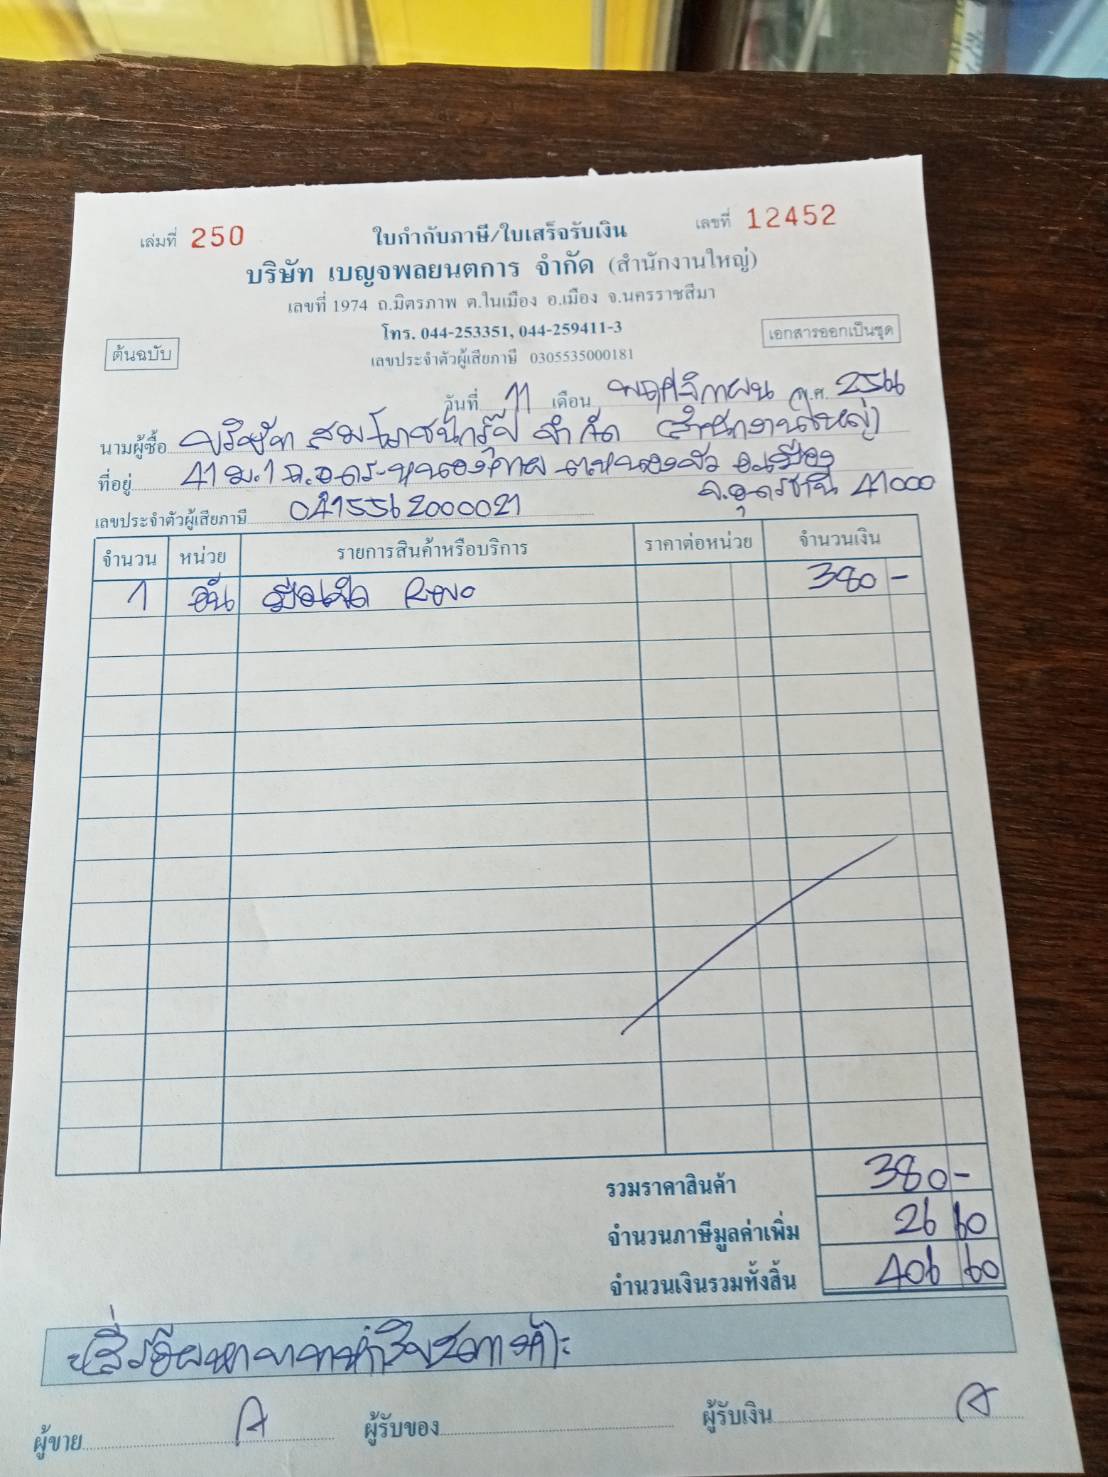 เล่มที่ 250 ใบกำกับภาษี/ใบเสร็จรับเงิน เลขที่ 12452
บริษัท เบญจพลยนตการ จำกัด (สำนักงานใหญ่)
เลขที่ 1974 ถ.มิตรภาพ ต.ในเมือง อ.เมือง จ.นครราชสีมา
โทร. 044-253351, 044-259411-3
ต้นฉบับ เลขประจำตัวผู้เสียภาษี 0305535000181 เอกสารออกเป็นชุด
วันที่ 11 เดือน พฤศจิกายน พ.ศ. 2566
นามผู้ซื้อ บริษัท สมโภชน์กรุ๊ป จำกัด (สำนักงานใหญ่)
ที่อยู่ 41 ม.1 ถ.อุดร-หนองคาย ต.หนองบัว อ.เมือง
จ.อุดรธานี 41000
เลขประจำตัวผู้เสียภาษี 0415562000021
จำนวน หน่วย รายการสินค้าหรือบริการ ราคาต่อหน่วย จำนวนเงิน
1 อัน มือเปิด Revo 380 -
รวมราคาสินค้า 380 -
จำนวนภาษีมูลค่าเพิ่ม 26 60
จำนวนเงินรวมทั้งสิ้น 406 60
(สี่ร้อยหกบาทหกสิบสตางค์)
ผู้ขาย ผู้รับของ ผู้รับเงิน